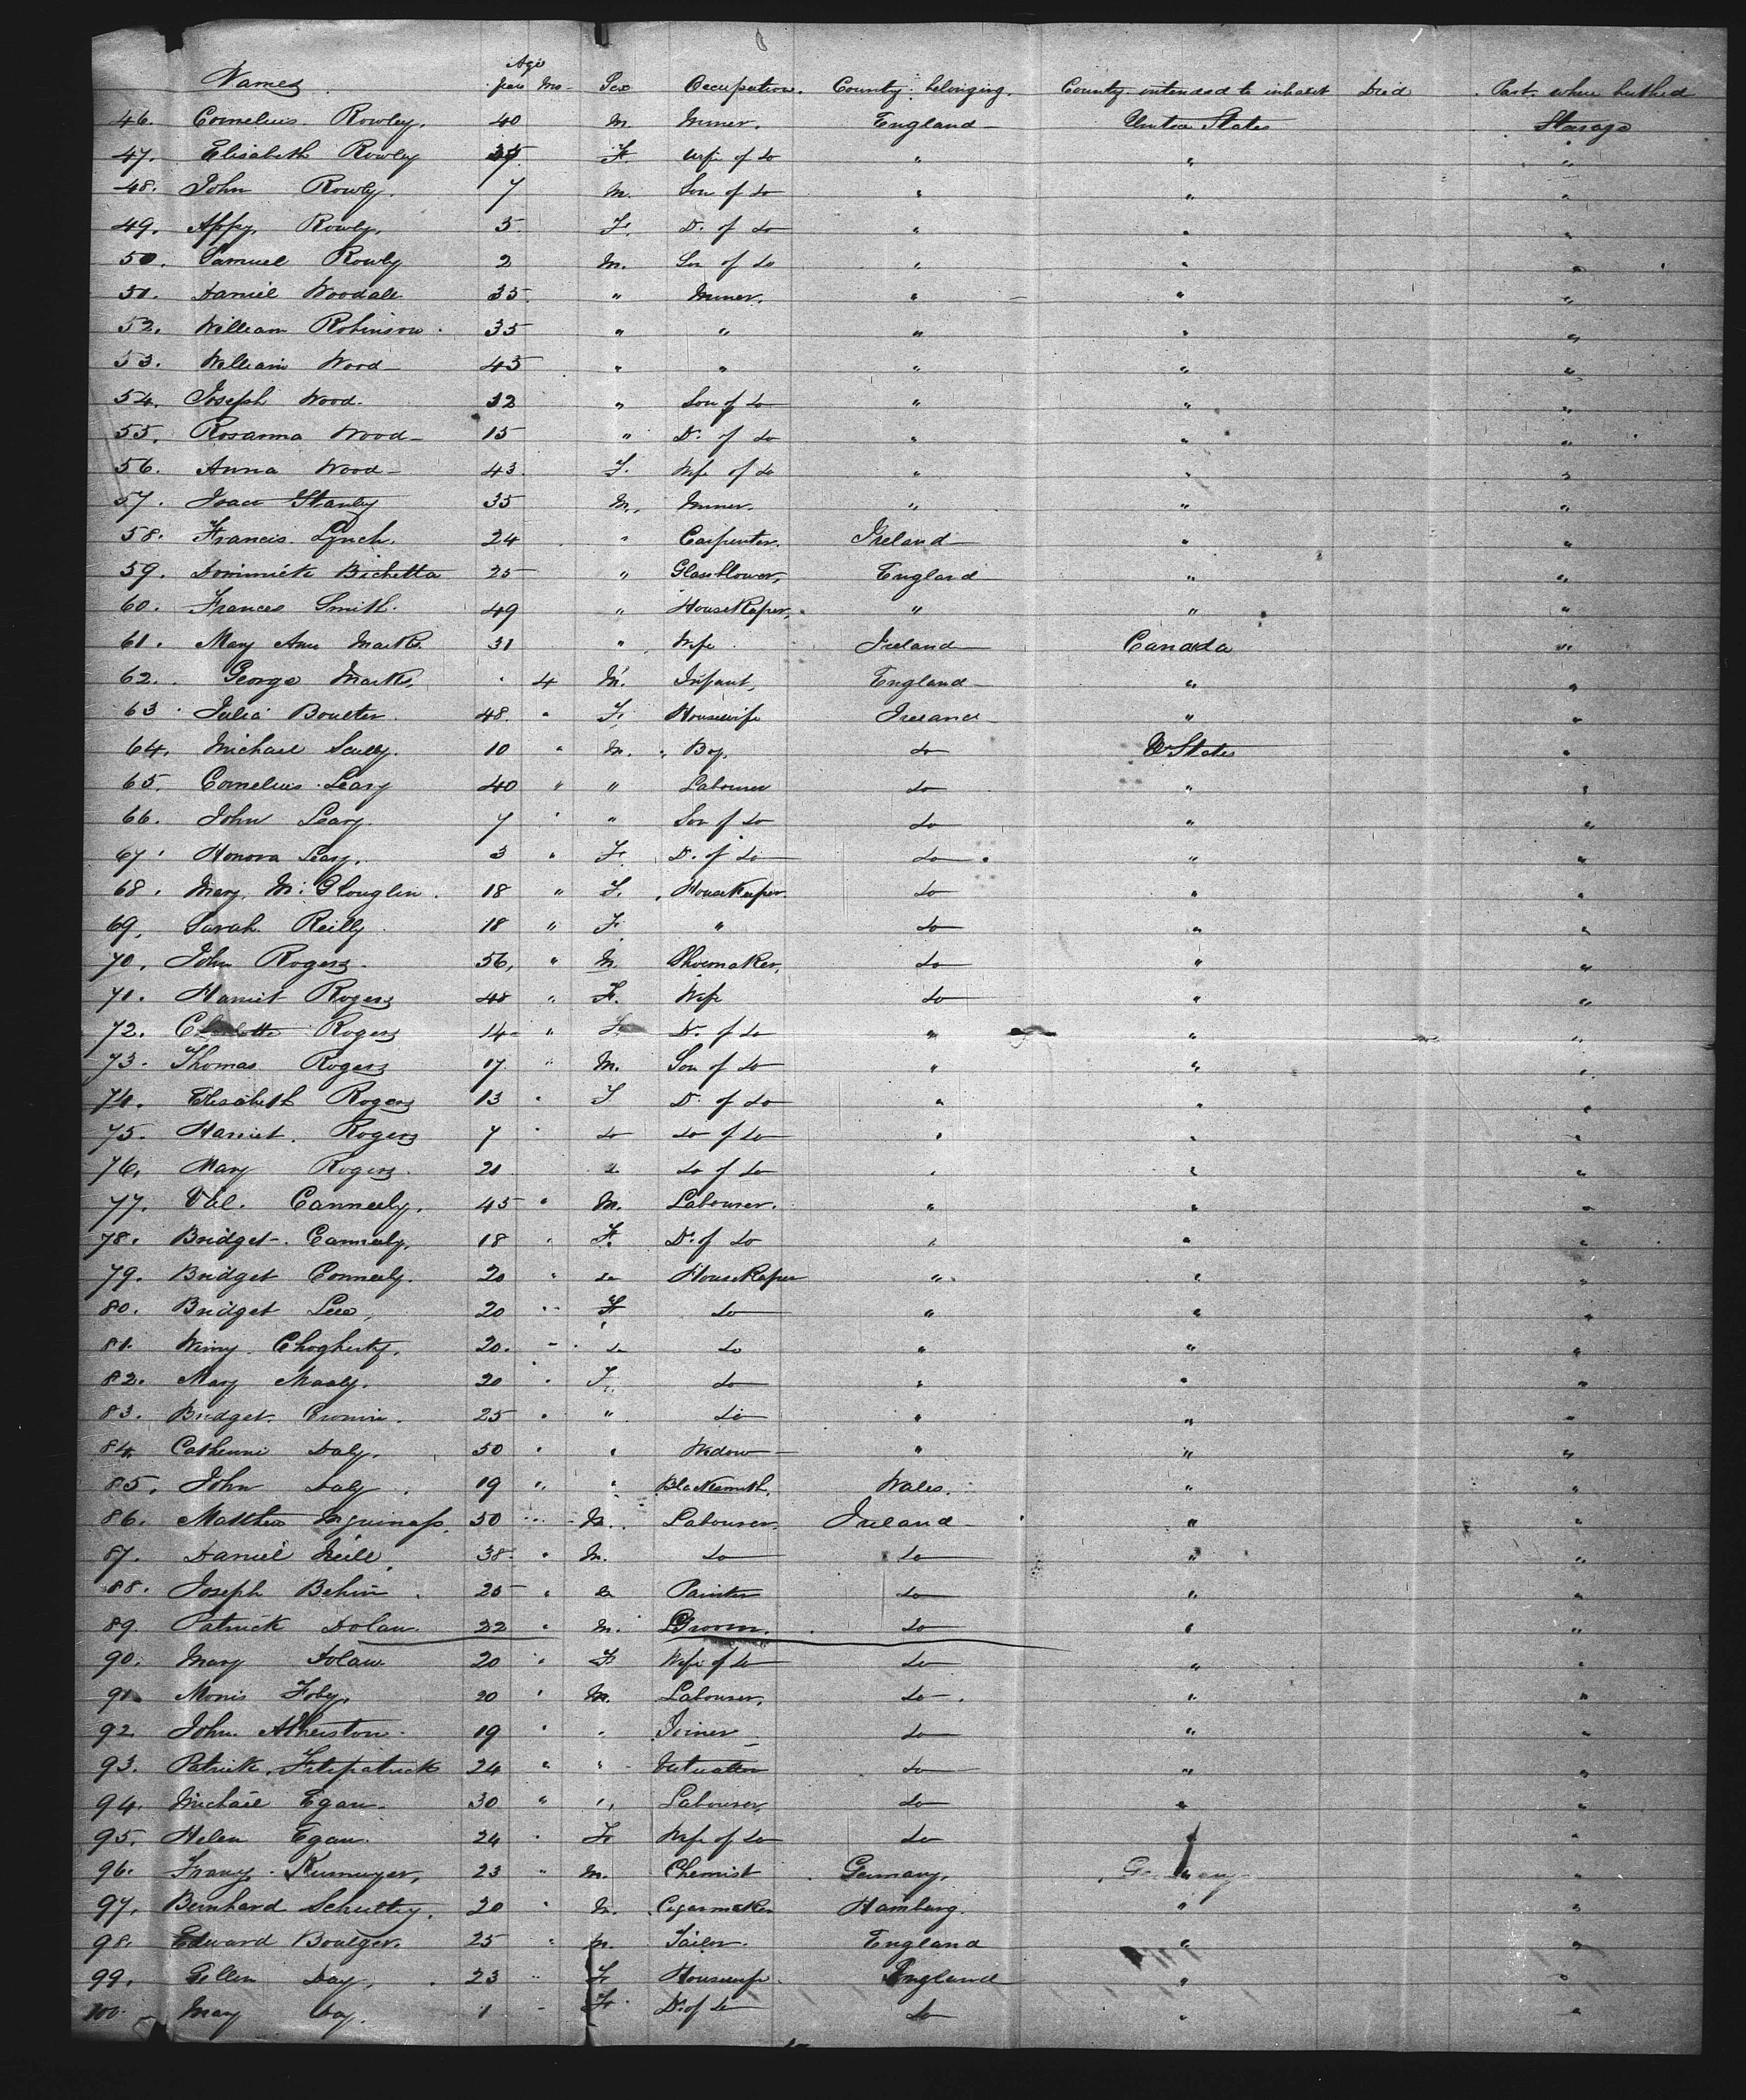 Names. Age years Mo- Sex Occupation. County belonging. County intended to inhabit Died Part where berthed
46. Cornelius Rowley. 40 M. Miner. England United States Steerage
47. Elisabeth Rowley F. Wife of do " " "
48. John Rowly. 7 M. Son of do " " "
49. Appy. Rowly. 5. F. D. of do " " "
50. Samuel Rowly 2 M. Son of do " " "
51. Daniel Woodall 35. " Miner. " " "
52. William Robinson. 35 " " " " "
53. William Wood 45 " " " " "
54. Joseph Wood. 32 " Son of do " " "
55. Rosanna Wood 15 " D. of do " " "
56. Anna Wood 43. F. Wife of do " " "
57. Isaac Stanley 35 M. Miner. " " "
58. Francis Lynch. 24 " Carpenter. Ireland " "
59. Dominick Bichetta 25 " Glassblower, England " "
60. Frances Smith. 49 " HouseKeper, " " "
61. Mary Ann Marks. 31 " Wife Ireland Canada "
62. George Marks, 4 M. Infant, England " "
63. Julia Boulter. 48. " F. Housewife Ireland " "
64. Michael Scully. 10 " M. Boy. do U States "
65. Cornelius Leary 40 " " Labourer do " "
66. John Leary. 7 " " Son of do do " "
67. Honora Leary. 3 " F. D. of do do " "
68. Mary McGlouglin. 18 " F. HouseKeeper. do " "
69. Sarah Reilly 18 " F. " do " "
70. John Rogers. 56, " M. ShoemaKer, do " "
71. Harriet Rogers 48 " F. Wife do " "
72. Charlotte Rogers 14 " F. D. of do " " "
73. Thomas Rogers 17. " M. Son of do " " "
74. Elisabeth Rogers 13 " F D. of do " " "
75. Harriet. Rogers 7 " do do of do " " "
76. Mary Rogers. 21 do do of do " " "
77. Val. Canneely. 45 " M. Labourer. " " "
78. Bridget. Canneely. 18 " F. D. of do " " "
79. Bridget Conneely. 20 " do HouseKeper " " "
80. Bridget Lee, 20 " F do " " "
81. Winny. Chogherty. 20. " do do " " "
82. Mary Maaly. 20 " F. do " " "
83. Bridget. Cronin. 25 " " do " " "
84. Catherine Daly. 50 " " Widow " " "
85. John Daly. 19 " " Blacksmith. Wales. " "
86. Matthew Mguiness. 50 " M. Labourer. Ireland " "
87. Daniel Neill 38. " M. do do " "
88. Joseph Behin. 25 " do Painter do " "
89. Patrick Dolan. 22 " M. Groom. do " "
90. Mary Dolan. 20 " F Wife of do do " "
91. Morris Foby. 20 " M. Labourer, do " "
92. John Atherston. 19 " " Joiner do " "
93. Patrick. Fitzpatrick 24 " " do " "
94. Michael Egan. 30 " " Labourer, do " "
95. Helen Egan. 24 " F. Wife of do do " "
96. 23 " M. Chemist Germany. Germany "
97. Bernhard 20 " M. Cigarmaker Hamburg. " "
98. Edward Boulger. 25 " M. Tailor. England " "
99. Ellen Day, 23 " F. Housewife. England " "
100. Mary Day. 1 - F. D. of do do " "